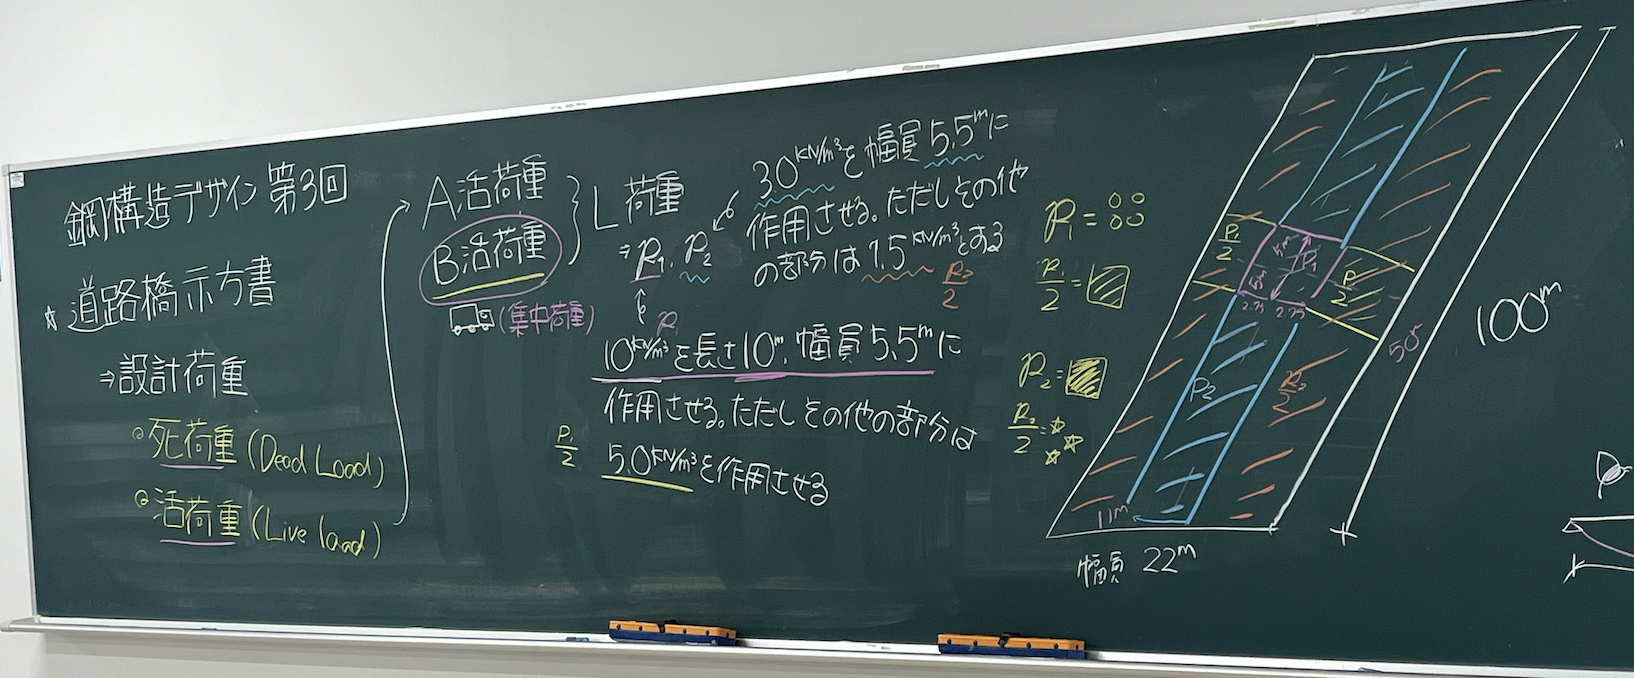 鋼構造デザイン 第3回
☆道路橋示方書
⇒設計荷重
◎死荷重 (Dead Load)
◎活荷重 (Live load)
A活荷重
B活荷重
(集中荷重)
L荷重
⇒P₁, P₂
3.0 kN/m³を幅員5.5mに
作用させる。ただしその他
の部分は1.5kN/m³とする
P₂/2
P₁
10kN/m³を長さ10m、幅員5.5mに
作用させる。ただしその他の部分は
P₁/2
5.0kN/m³を作用させる
P₁=
P₁/2=
P₂=
P₂/2=
P₁/2
5m
P₁
5m
P₁/2
2.75 2.75
P₂
P₂/2
50m
100m
11m
幅員 22m
P